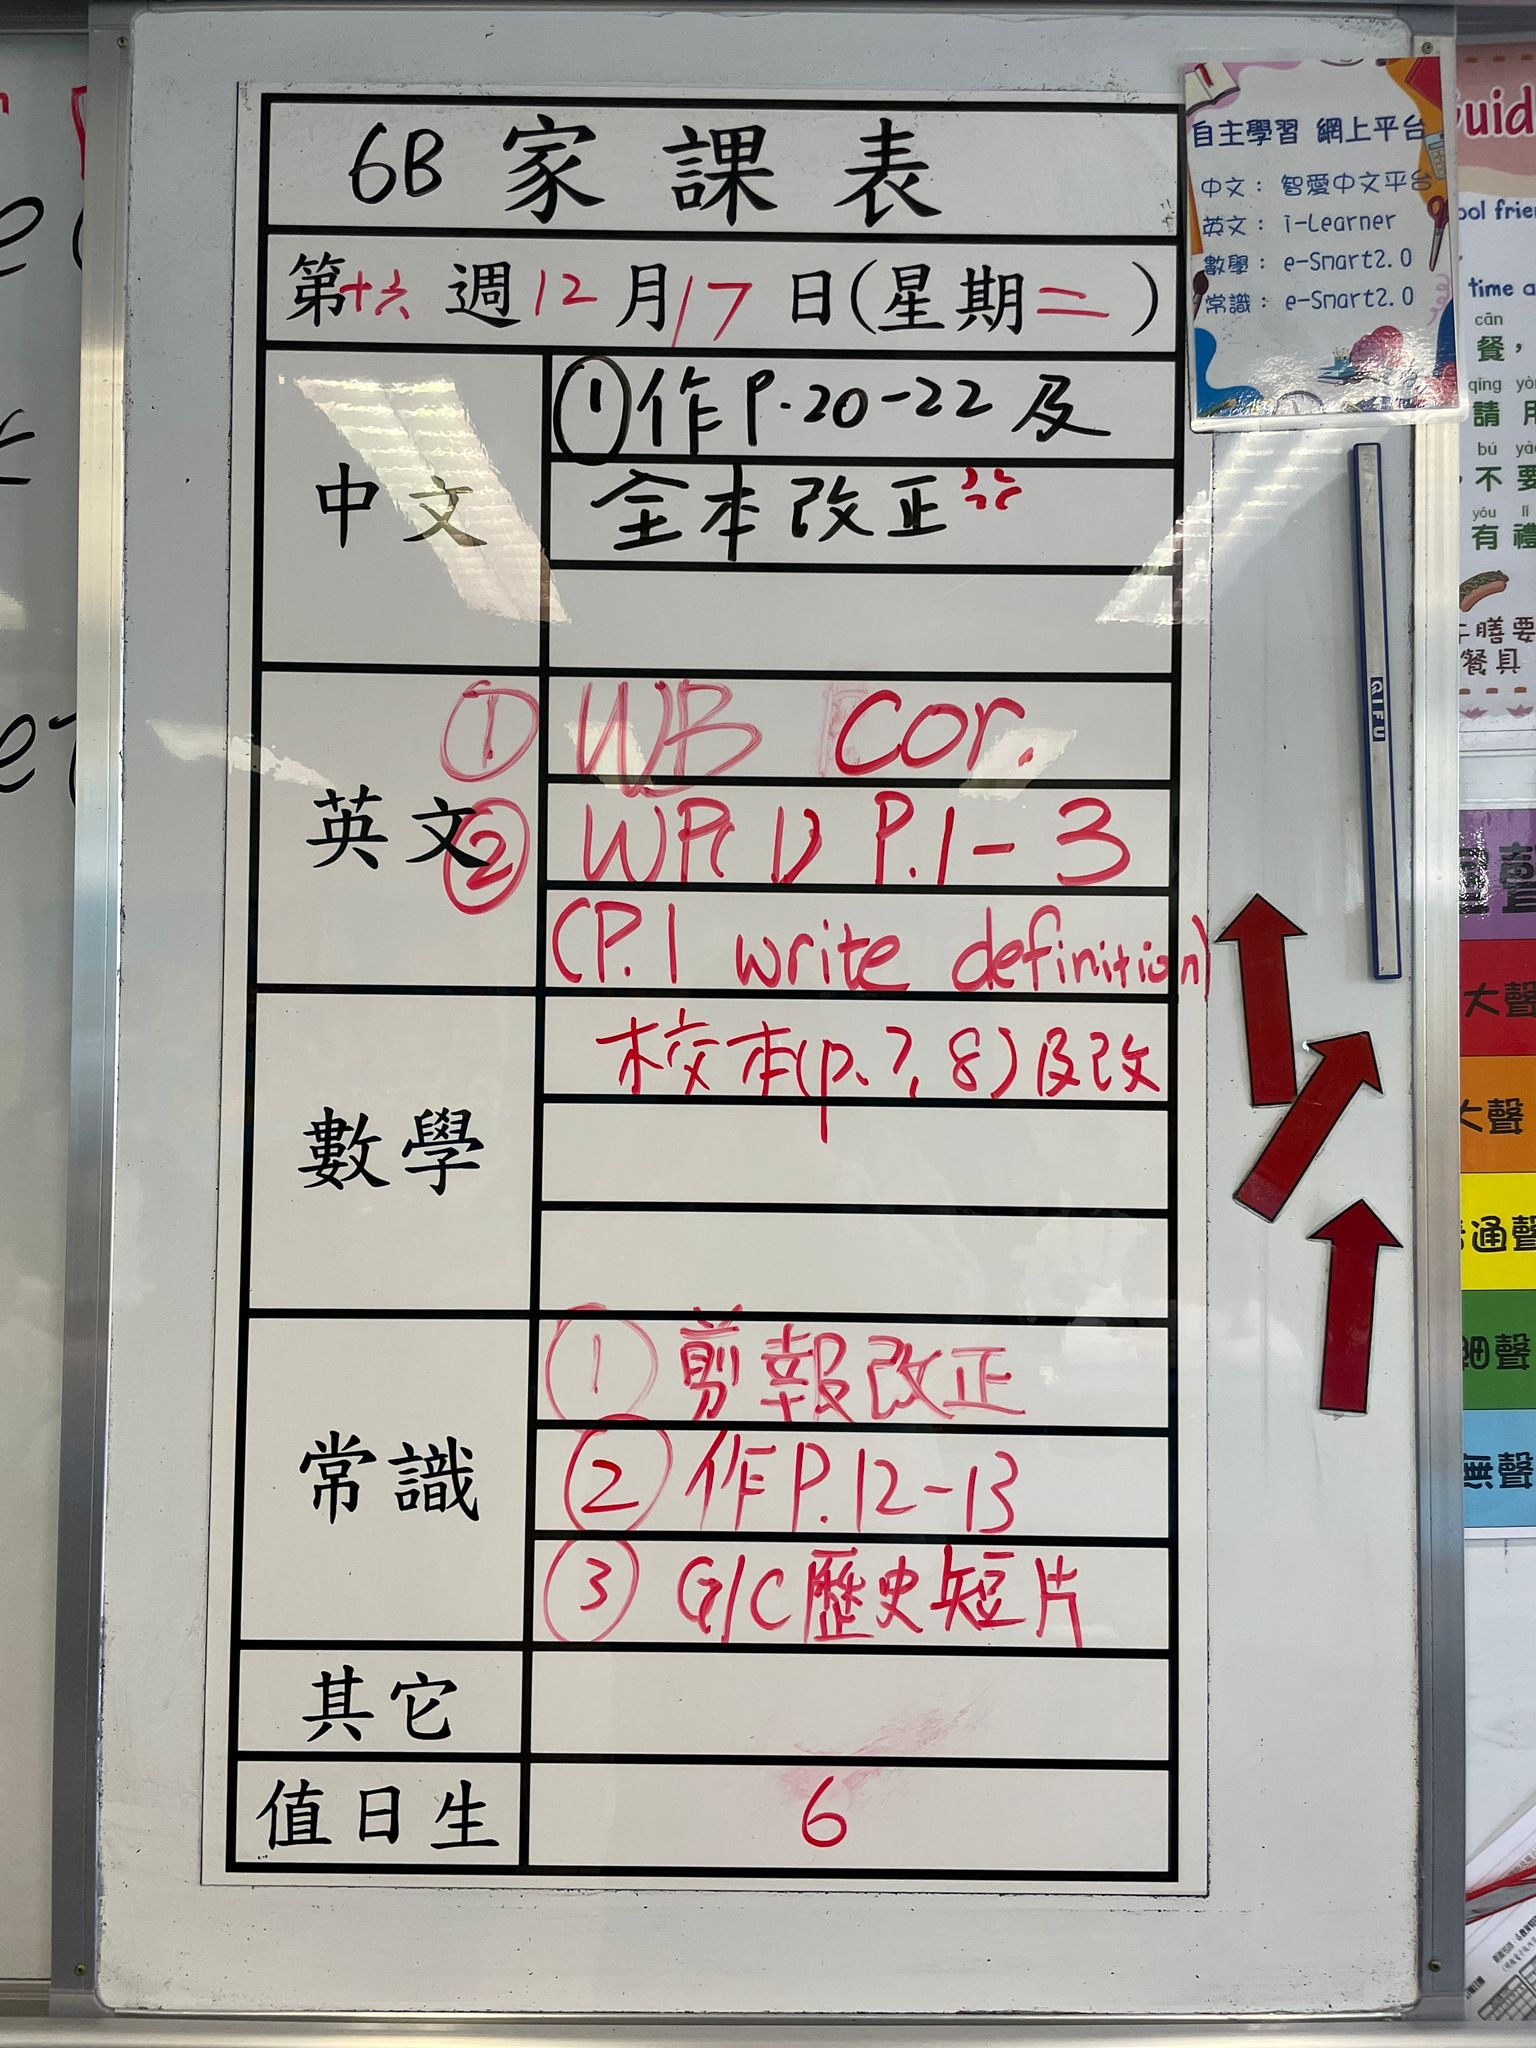 6B 家課表
第十六週12月17日(星期二)
中文
①作P.20-22及
全本改正
英文
① WB cor.
② WP(1) P.1-3
(P.1 write definition)
數學
校本(p.7,8)及改
常識
①剪報改正
②作P.12-13
③G/C歷史短片
其它
值日生
6
自主學習 網上平台
中文：智愛中文平台
英文：i-Learner
數學：e-Smart2.0
常識：e-Smart2.0
QIFU
uid
ool frie
time a
cān
餐，
qǐng
請
bú
不要
yǒu lǐ
有禮
膳要
餐具
聲
大聲
聲
通聲
聲
無聲